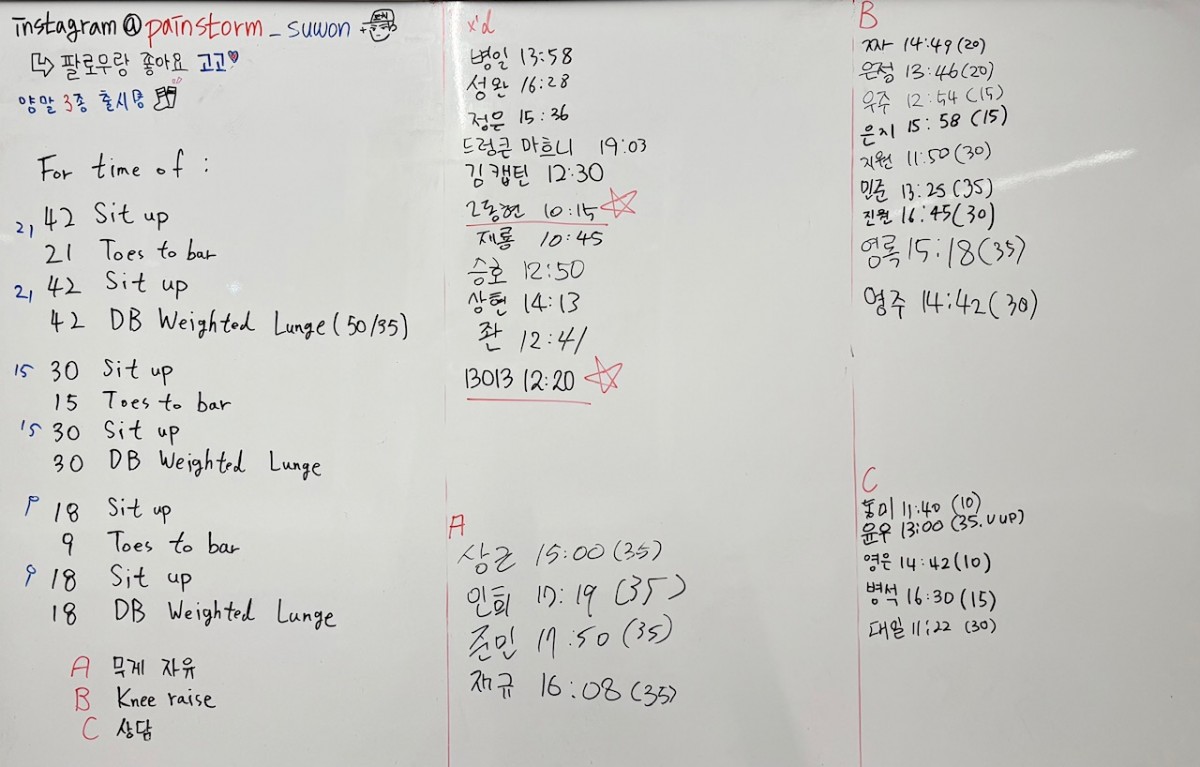 instagram@painstorm_suwon +
↳ 팔로우랑 좋아요 고고♥
양말 3종 출시중
For time of :
21 42 Sit up
21 Toes to bar
21 42 Sit up
42 DB Weighted Lunge (50/35)
15 30 Sit up
15 Toes to bar
15 30 Sit up
30 DB Weighted Lunge
9 18 Sit up
9 Toes to bar
9 18 Sit up
18 DB Weighted Lunge
A 무게 자유
B Knee raise
C 상담
x'd
병일 13:58
성완 16:28
정은 15:36
드렁큰 마흐니 19:03
김캡틴 12:30
그동현 10:15 ☆
재룡 10:45
승호 12:50
상현 14:13
좐 12:41
13013 12:20 ☆
A
상근 15:00 (35)
인희 17:19 (35)
준민 17:50 (35)
재규 16:08 (35)
B
짜 14:49 (20)
은정 13:46 (20)
우주 12:54 (15)
은지 15:58 (15)
지원 11:50 (30)
민준 13:25 (35)
진원 16:45 (30)
영록 15:18 (35)
영주 14:42 (30)
C
11:40 (10)
윤우 13:00 (35. V up)
영은 14:42 (10)
병석 16:30 (15)
대일 11:22 (30)